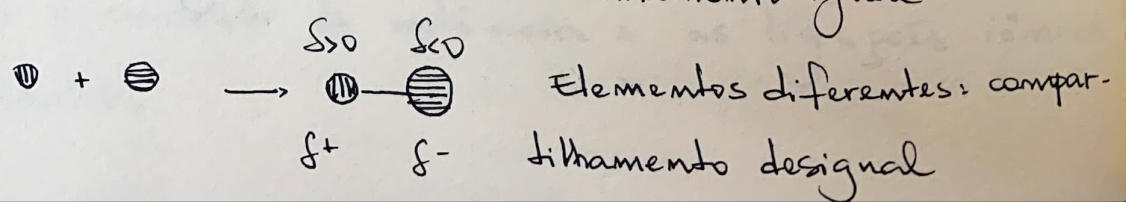 δ>0 δ<0
+ → Elementos diferentes: compar-
δ+ δ- tilhamento desigual